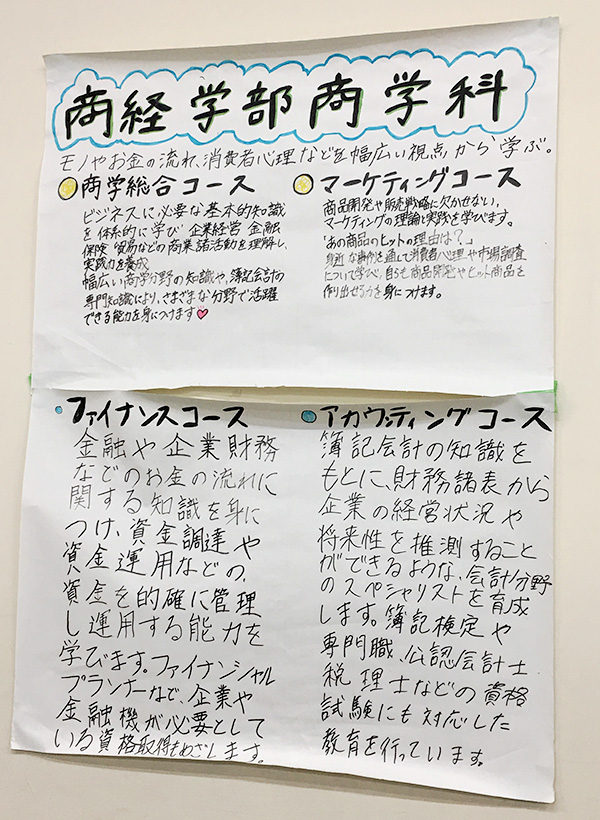 商経学部商学科
モノやお金の流れ、消費者心理などを幅広い視点から学ぶ。
商学総合コース
ビジネスに必要な基本的知識
を体系的に学び企業経営 金融
保険 貿易などの商業諸活動を理解し、
実践力を養成
幅広い商学分野の知識や、簿記会計の
専門知識により、さまざまな分野で活躍
できる能力を身につけます
マーケティングコース
商品開発や販売戦略に欠かせない、
マーケティングの理論と実践を学びます。
「あの商品のヒットの理由は?」
身近な事例を通して消費者心理や市場調査
について学び、自らも商品開発やヒット商品を
作り出せる力を身につけます。
ファイナンスコース
金融や企業財務
などのお金の流れに
関する知識を身に
つけ、資金調達や
資金運用などの、
資金を的確に管理
し運用する能力を
学びます。ファイナンシャル
プランナーなど、企業や
金融機が必要として
いる資格取得をめざします。
アカウンティングコース
簿記会計の知識を
もとに、財務諸表から
企業の経営状況や
将来性を推測すること
ができるような、会計分野
のスペシャリストを育成
します。簿記検定や
専門職、公認会計士
税理士などの資格
試験にも対応した
教育を行っています。